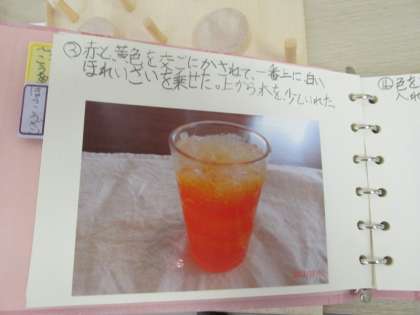 ③赤と、黄色を交ごにかさねて、一番上に、白い
ほれいざいを乗せた。上から水を、少しいれた。
④色を
入れ